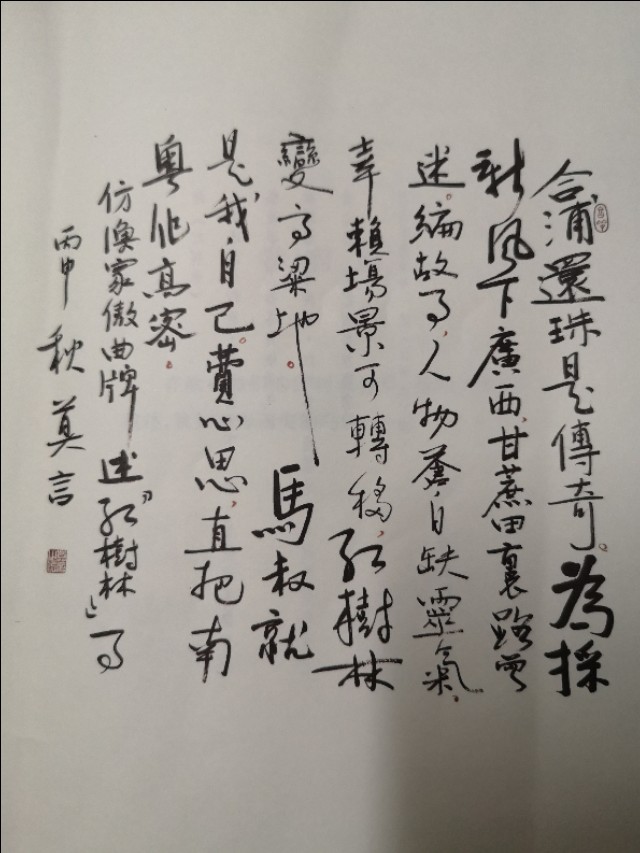 合浦還珠是傳奇。為採
新風下廣西，甘蔗田裏路曾
迷。編故事，人物蒼白缺靈氣。
幸賴場景可轉移，紅樹林
變高粱地。馬叔就
是我自己。費心思，直把南
粵作高密。
仿漁家傲曲牌 述「紅樹林」事
丙申秋 莫言